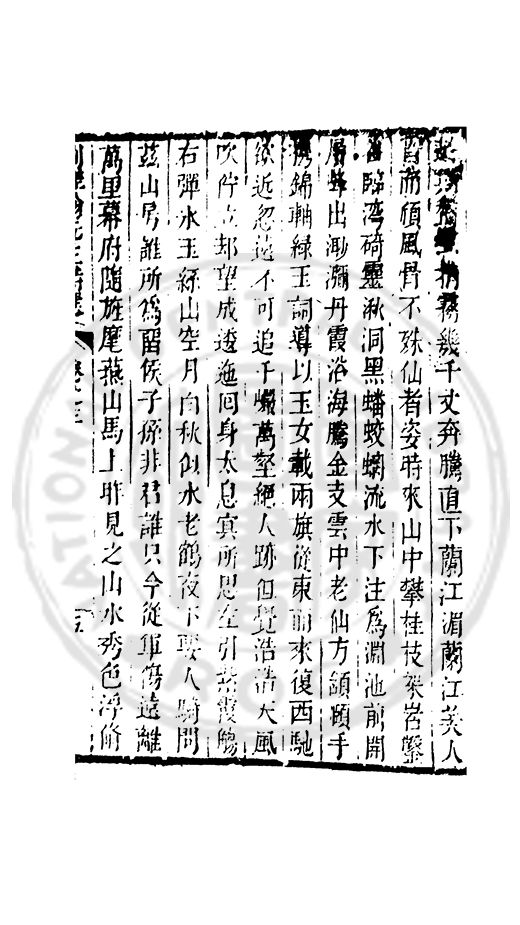 霧幾千丈奔騰直下蘭江湄蘭江美人
皙而頎風骨不殊仙者姿時來山中攀桂枝架岩鑿
臨灣碕靈湫洞黑蟠蛟螭流水下注為淵池前開
出泐灂丹霞浴海騰金支雲中老仙方頷頤手
攜錦軸綠玉詞導以玉女載兩旗從東而來復西馳
欲近忽遠不可追千巖萬壑絕人跡但覺浩浩天風
吹佇立却望成逶迤回身太息寘所思左引紫霞觴
右彈水玉絲山空月白秋似水老鶴夜下要人騎問
茲山号誰所為留侯子孫非君誰只今從軍傷遠離
萬里幕府隨旌麾燕山馬上時見之山水秀色浮脩